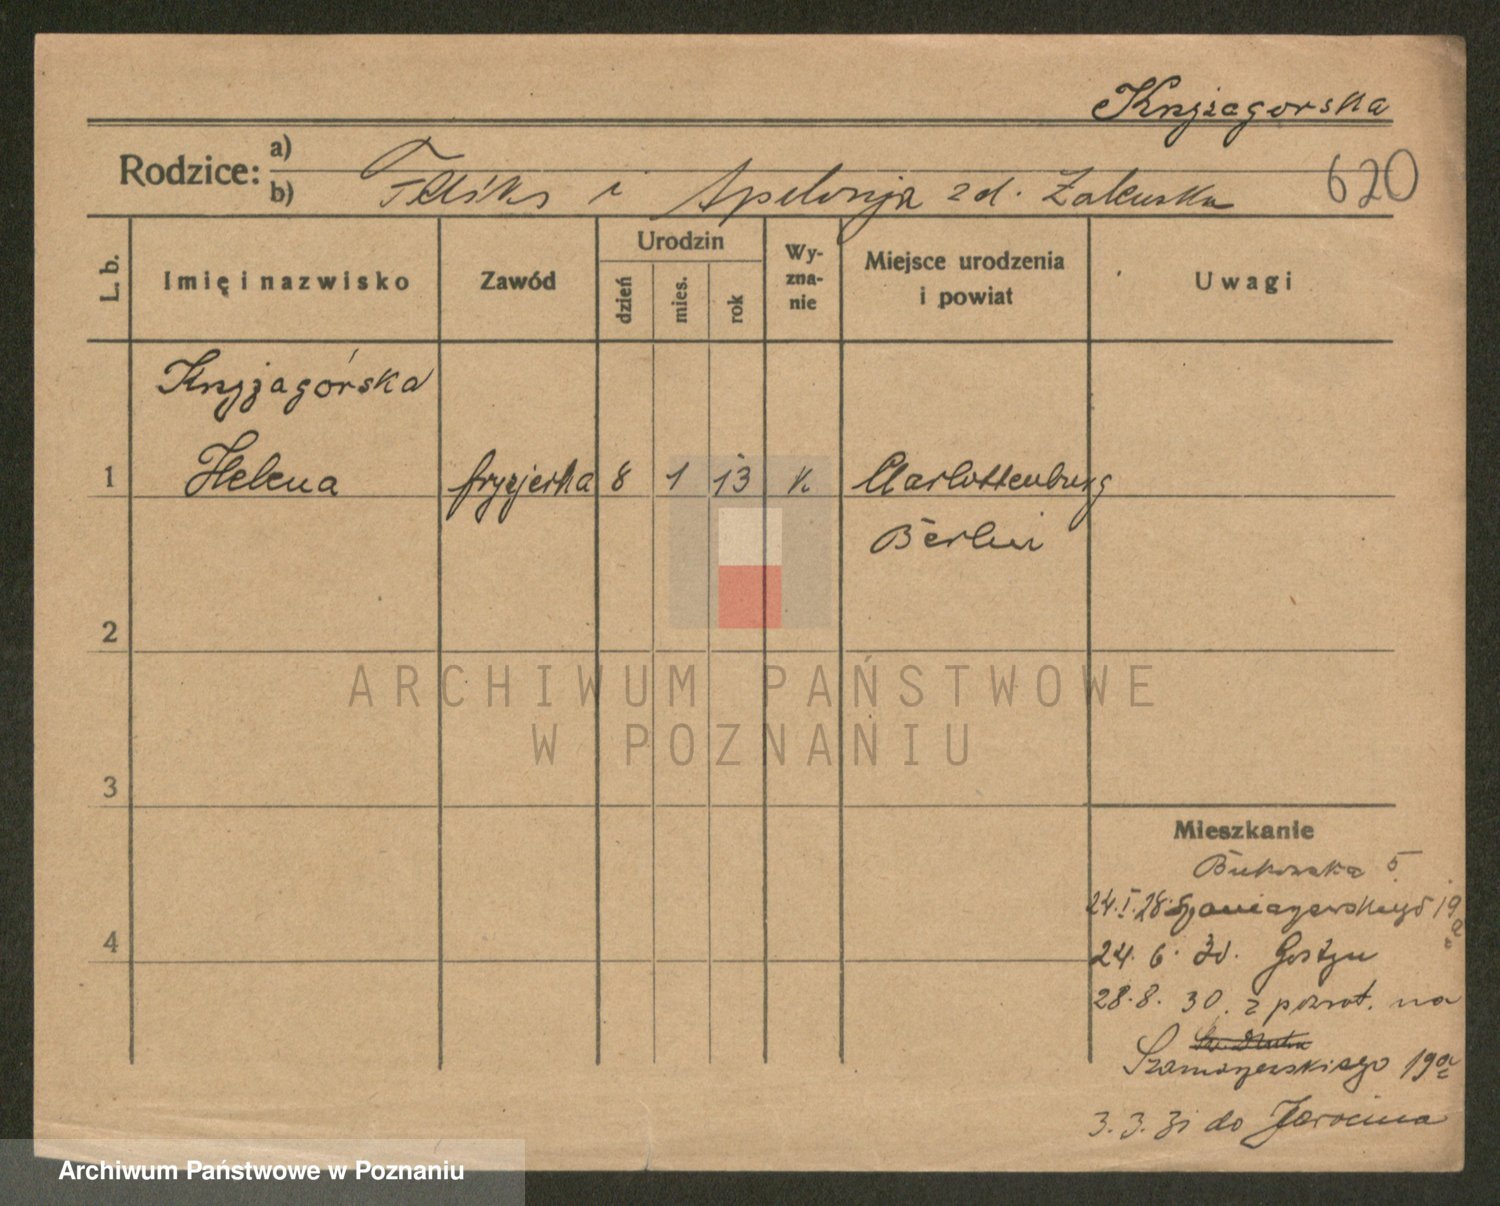 Knyżagorska
Rodzice: a)
b) Feliks i Apolonja zd. Zaleuska
620
L. b.
Imię i nazwisko
Zawód
Urodzin
dzień
mies.
rok
Wy-
zna-
nie
Miejsce urodzenia
i powiat
Uwagi
Knyżagórska
1 Helena fryzjerka 8 1 13 k Charlottenburg
Berlin
2
3
4
ARCHIWUM PAŃSTWOWE
W POZNANIU
Mieszkanie
Bukowska 5
24.I.28. 19a
24. 6. 30. Gostyn
28. 8. 30. z powrot. na
Szamarzewskiego 19a
3. 3. 31 do Jarocina
Archiwum Państwowe w Poznaniu